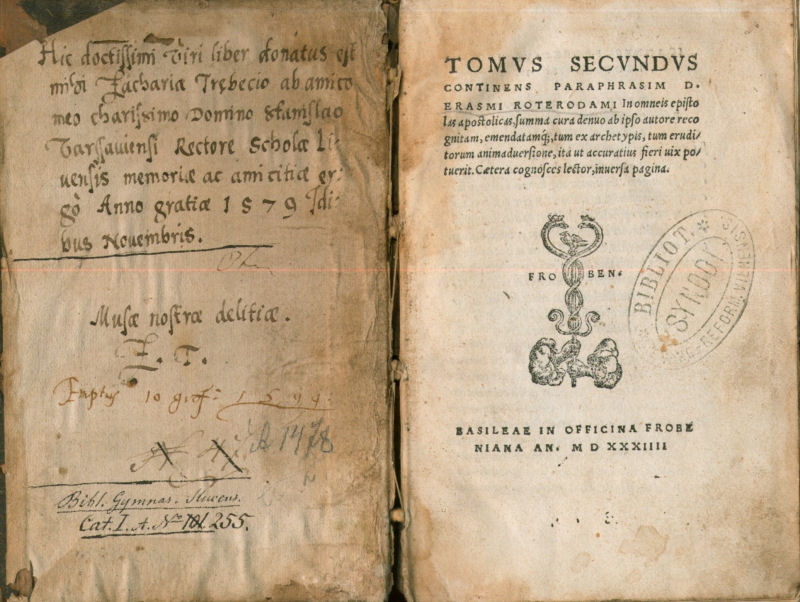 Hic doctissimi viri liber donatus est
mihi Zachariæ Trebecio ab amico
meo charissimo Domino Stanislao
Varssauiensi Rectore Scholæ Li-
uensis memoriæ ac amicitiæ er-
gò Anno gratiæ 1579 Idi-
bus Nouembris.
Musæ nostræ delitiæ.
Z. T.
Emptus 10 gros
1478
Bibl. Gymnas. Slucens.
Cat. I. A. No 101 255.
TOMVS SECVNDVS
CONTINENS PARAPHRASIM D.
ERASMI ROTERODAMI In omneis episto
las apostolicas, summa cura denuo ab ipso autore reco
gnitam, emendatamq;, tum ex archetypis, tum erudi/
torum animaduersione, ita ut accuratius fieri uix po/
tuerit. Cætera cognosces lector, inuersa pagina.
FRO BEN.
BIBLIOT.
SYNODI
REFORM. VILNENSIS
BASILEAE IN OFFICINA FROBE
NIANA AN. M D XXXIIII